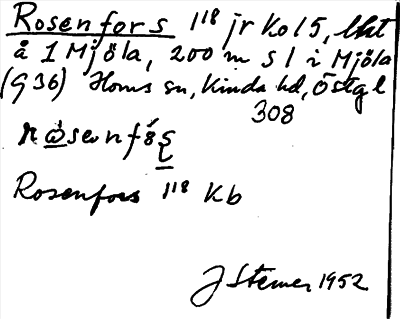 Rosenfors 1¹¹⁸ jr Ko 15, lht
å 1 Mjöla, 200 m S l i Mjöla
(G 36) Horns sn, Kinda hd, Östgl
308
Rosenfors 1¹¹⁸ Kb
J Sterner 1952